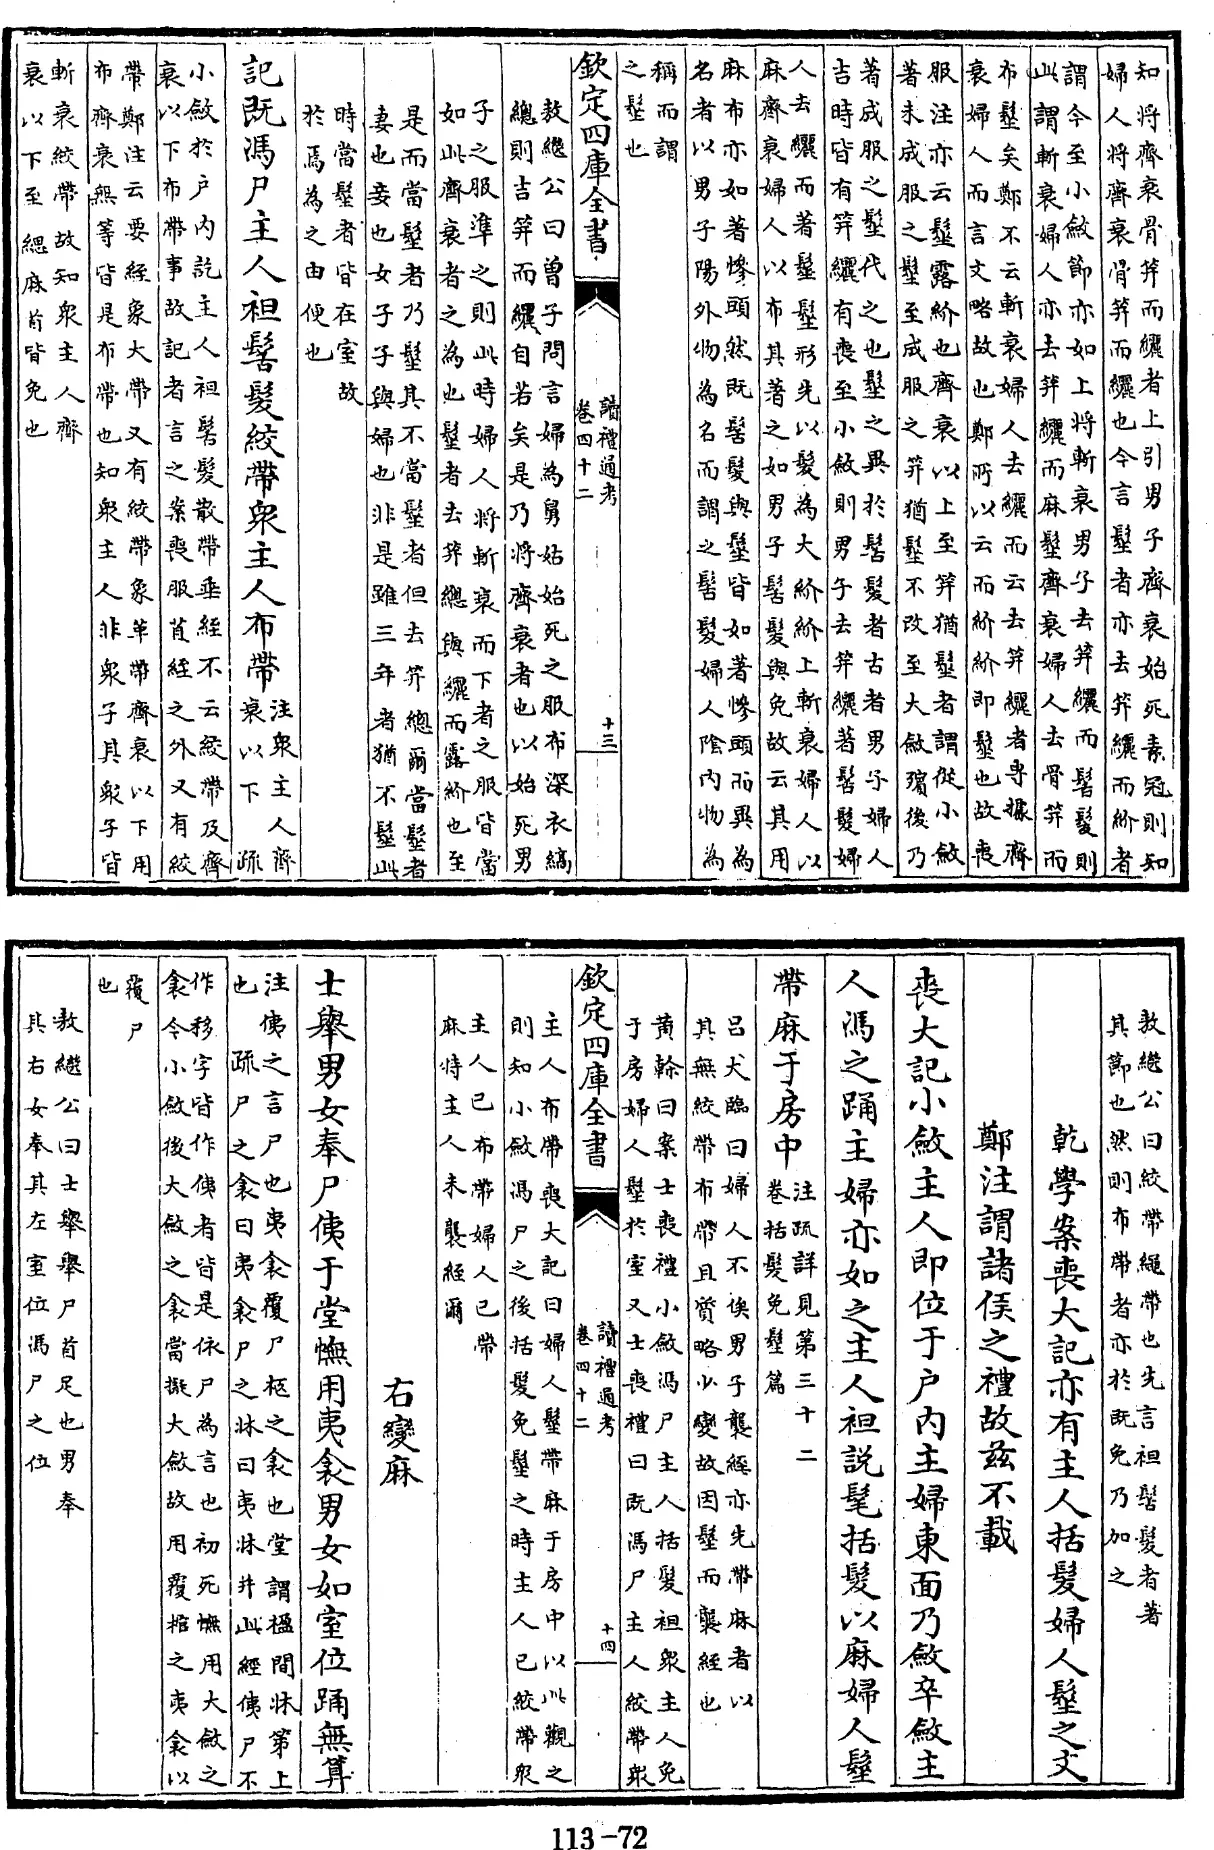 知將齊衰骨笄而纚者上引男子齊衰始死素冠則知
婦人將齊衰骨笄而纚也今言髽者亦去笄纚而紒者
謂今至小斂節亦如上將斬衰男子去笄纚而髻髮則
此謂斬衰婦人亦去笄纚而麻髽齊衰婦人去骨笄而
布髽矣鄭不云斬衰婦人去纚而云去笄纚者專據齊
衰婦人而言文略故也鄭所以云而紒紒即髽也故喪
服注亦云髽露紒也齊衰以上至笄猶髽者謂從小斂
著未成服之髽至成服之笄猶髽不改至大斂殯後乃
著成服之髽代之也髽之異於髻髮者古者男子婦人
吉時皆有笄纚有喪至小斂則男子去笄纚著髻髮婦
人去纚而著髽髽形先以髮為大紒紒上斬衰婦人以
麻齊衰婦人以布其著之如男子髻髮與免故云其用
麻布亦如著幓頭然既髻髮與髽皆如著幓頭而異為
名者以男子陽外物為名而謂之髻髮婦人陰内物為
稱而謂
之髽也
欽定四庫全書
讀禮通考
卷四十二
十三
敖繼公曰曾子問言婦為舅姑始死之服布深衣縞
總則吉笄而纚自若矣是乃將齊衰者也以始死男
子之服準之則此時婦人將斬衰而下者之服皆當
如此齊衰者之為也髽者去笄總與纚而露紒也至
是而當髽者乃髽其不當髽者但去笄總爾當髽者
妻也妾也女子子與婦也非是雖三年者猶不髽此
時當髽者皆在室故
於焉為之由便也
記既馮尸主人袒髻髮絞帶衆主人布帶
注衆主人齊
衰以下 疏
小斂於戶内訖主人袒髻髮散帶垂絰不云絞帶及齊
衰以下布帶事故記者言之案喪服苴絰之外又有絞
帶鄭注云要絰象大帶又有絞帶象革帶齊衰以下用
布齊衰無等皆是布帶也知衆主人非衆子其衆子皆
斬衰絞帶故知衆主人齊
衰以下至緦麻首皆免也
敖繼公曰絞帶繩帶也先言袒髻髮者著
其節也然則布帶者亦於既免乃加之
乾學案喪大記亦有主人括髮婦人髽之文
鄭注謂諸侯之禮故茲不載
喪大記小斂主人即位于户内主婦東面乃斂卒斂主
人馮之踊主婦亦如之主人袒說髦括髮以麻婦人髽
帶麻于房中
注疏詳見第三十二
卷括髮免髽篇
呂大臨曰婦人不俟男子襲絰亦先帶麻者以
其無絞帶布帶且質略少變故因髽而襲絰也
黄榦曰案士喪禮小斂馮尸主人括髮袒衆主人免
于房婦人髽於室又士喪禮曰既馮尸主人絞帶衆
欽定四庫全書
讀禮通考
卷四十二
十四
主人布帶喪大記曰婦人髽帶麻于房中以此觀之
則知小斂馮尸之後括髮免髽之時主人已絞帶衆
主人已布帶婦人已帶
麻特主人未襲絰爾
右變麻
士舉男女奉尸侇于堂幠用夷衾男女如室位踊無算
注侇之言尸也夷衾覆尸柩之衾也堂謂楹間牀笫上
也 疏尸之衾曰夷衾尸之牀曰夷牀并此經侇尸不
作移字皆作侇者皆是依尸為言也初死幠用大斂之
衾今小斂後大斂之衾當擬大斂故用覆棺之夷衾以
覆尸
也
敖繼公曰士舉舉尸首足也男奉
其右女奉其左室位馮尸之位
113-72